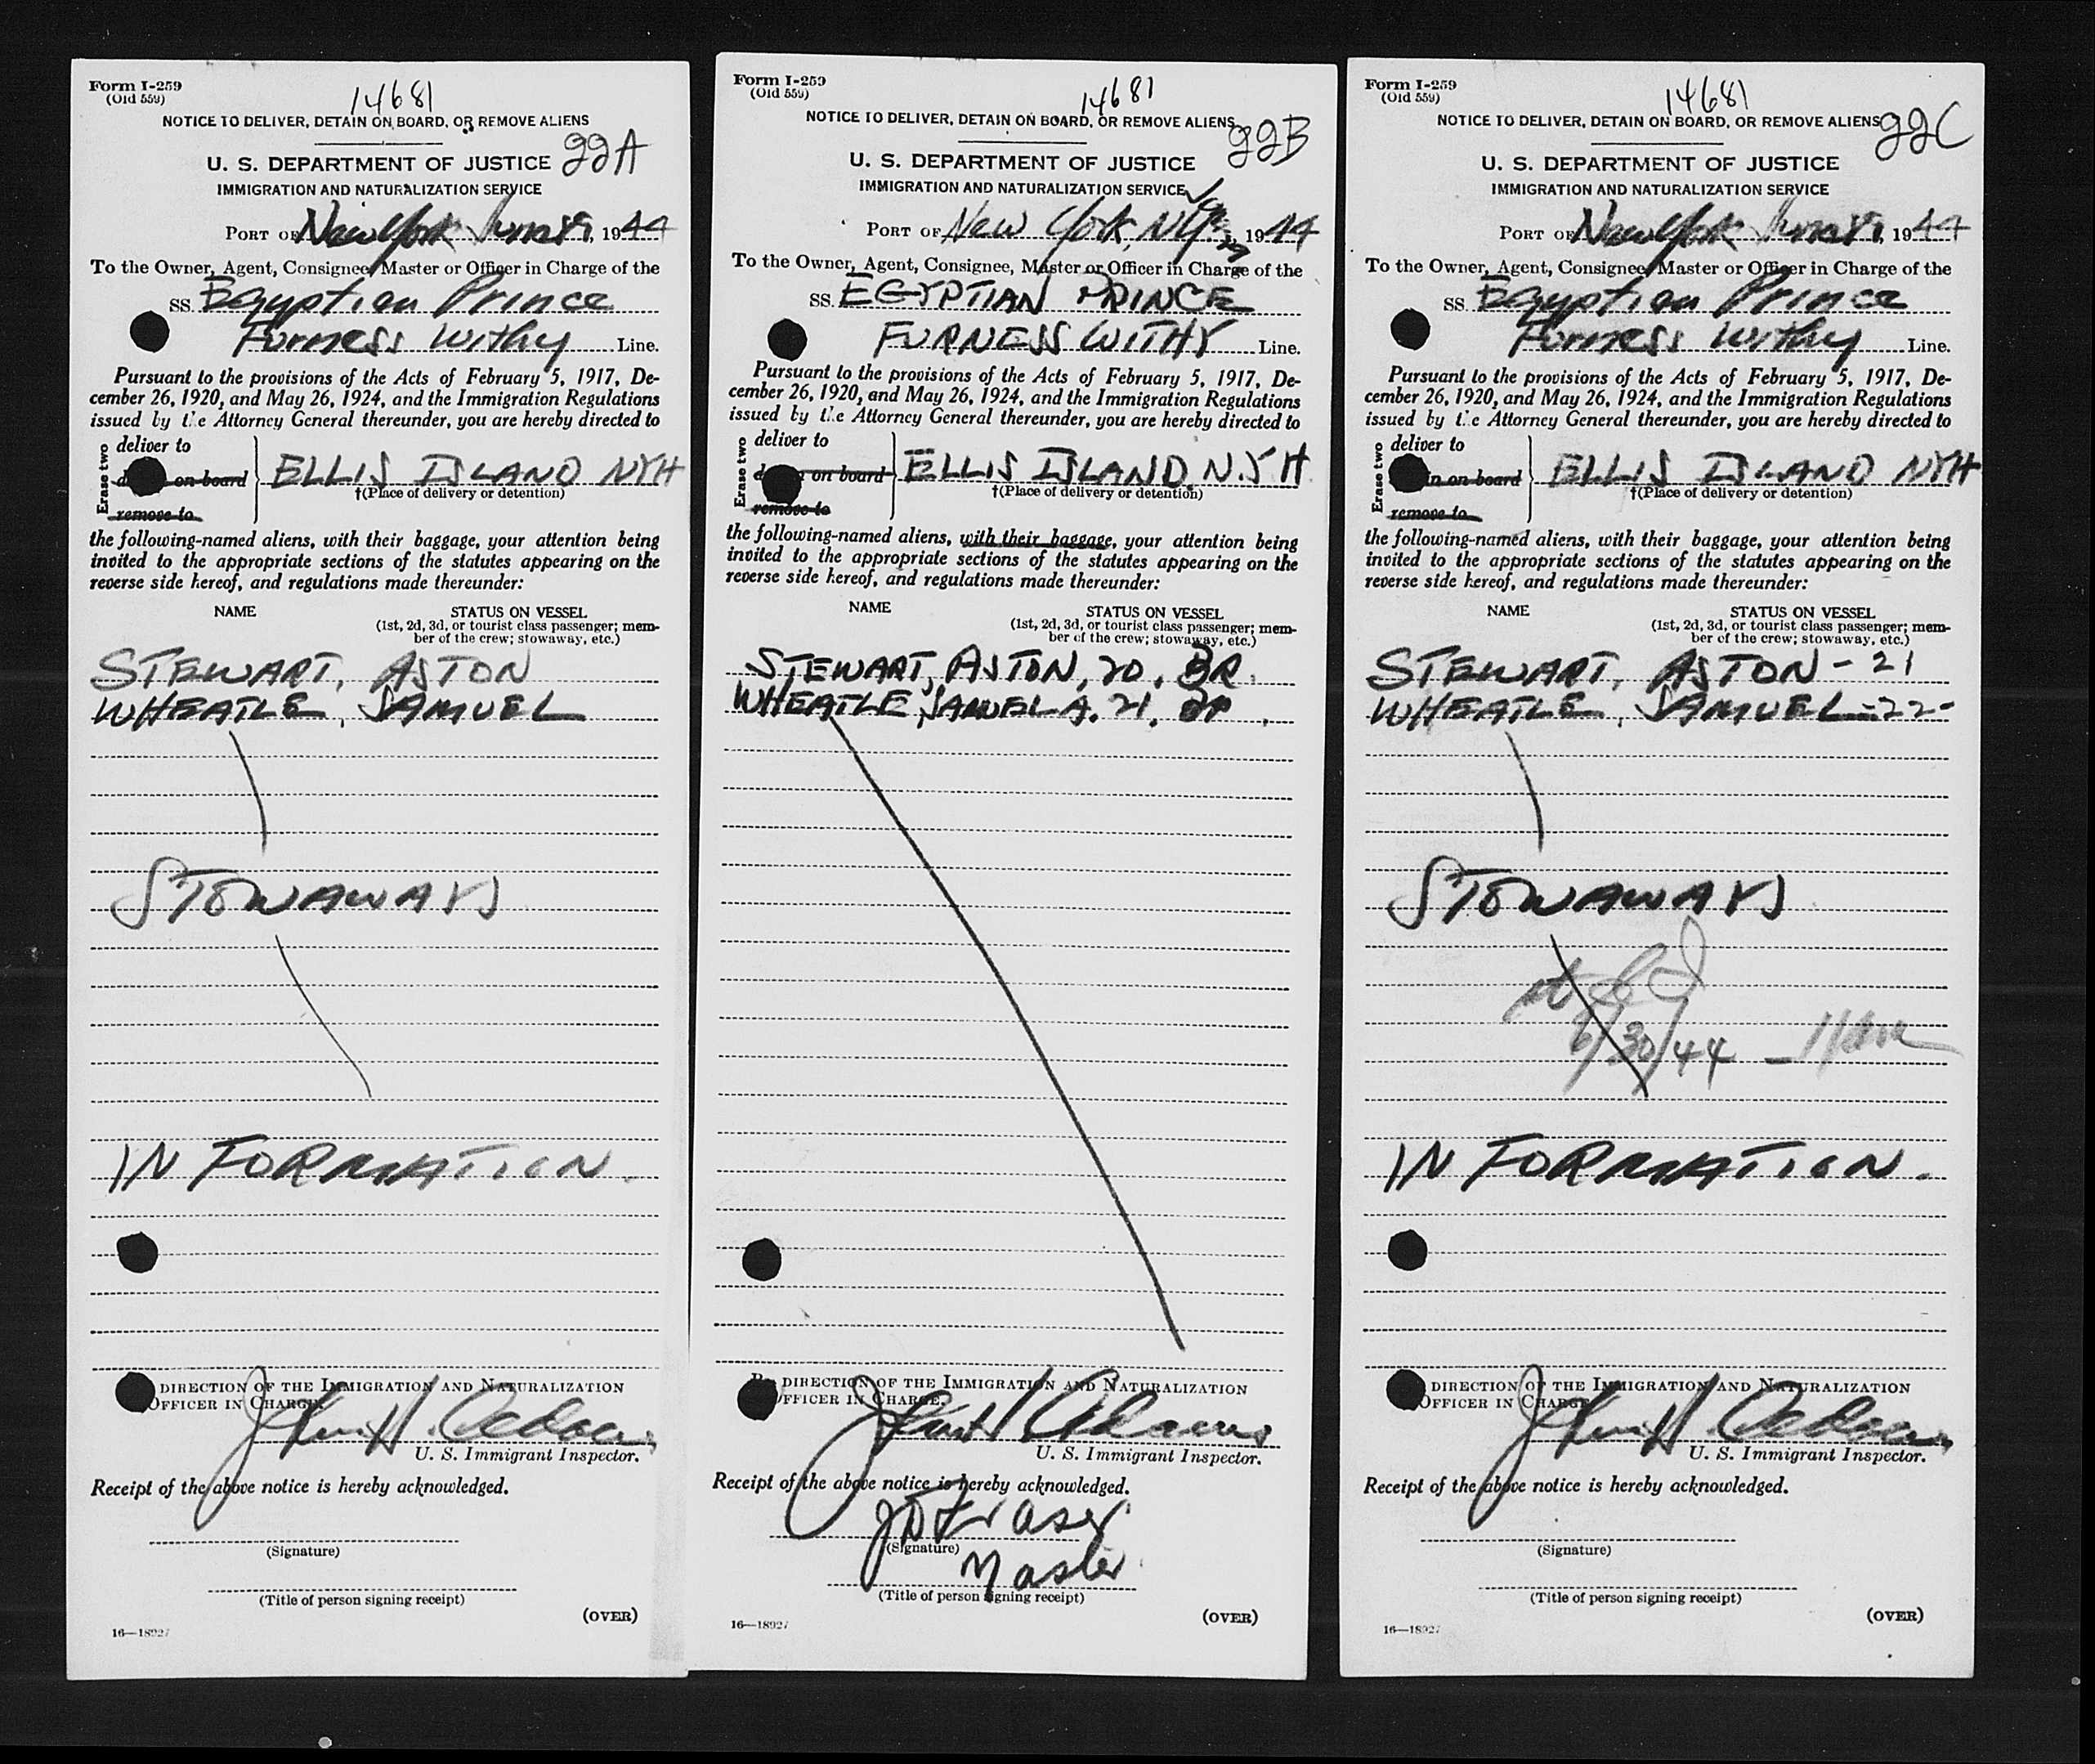 Form I-259
(Old 559)
14681
NOTICE TO DELIVER, DETAIN ON BOARD, OR REMOVE ALIENS
U. S. DEPARTMENT OF JUSTICE 22A
IMMIGRATION AND NATURALIZATION SERVICE
PORT OF New York, 1944
To the Owner, Agent, Consignee, Master or Officer in Charge of the
SS. Egyptian Prince
Furness Withy Line.
Pursuant to the provisions of the Acts of February 5, 1917, De-
cember 26, 1920, and May 26, 1924, and the Immigration Regulations
issued by the Attorney General thereunder, you are hereby directed to
Erase two
deliver to
on board
remove to
ELLIS ISLAND NYH
†(Place of delivery or detention)
the following-named aliens, with their baggage, your attention being
invited to the appropriate sections of the statutes appearing on the
reverse side hereof, and regulations made thereunder:
NAME STATUS ON VESSEL
(1st, 2d, 3d, or tourist class passenger; mem-
ber of the crew; stowaway, etc.)
STEWART, ASTON
WHEATLE, SAMUEL
STOWAWAYS
INFORMATION.
DIRECTION OF THE IMMIGRATION AND NATURALIZATION
OFFICER IN CHARGE.
John H. Adams
U. S. Immigrant Inspector.
Receipt of the above notice is hereby acknowledged.
(Signature)
(Title of person signing receipt)
(OVER)
16—18927
Form I-259
(Old 559)
14681
NOTICE TO DELIVER, DETAIN ON BOARD, OR REMOVE ALIENS
22B
U. S. DEPARTMENT OF JUSTICE
IMMIGRATION AND NATURALIZATION SERVICE
PORT OF New York, NY, 1944
To the Owner, Agent, Consignee, Master or Officer in Charge of the
SS. EGYPTIAN PRINCE
FURNESS WITHY Line.
Pursuant to the provisions of the Acts of February 5, 1917, De-
cember 26, 1920, and May 26, 1924, and the Immigration Regulations
issued by the Attorney General thereunder, you are hereby directed to
Erase two
deliver to
on board
remove to
ELLIS ISLAND, N.Y.H.
†(Place of delivery or detention)
the following-named aliens, with their baggage, your attention being
invited to the appropriate sections of the statutes appearing on the
reverse side hereof, and regulations made thereunder:
NAME STATUS ON VESSEL
(1st, 2d, 3d, or tourist class passenger; mem-
ber of the crew; stowaway, etc.)
STEWART, ASTON, 20, BR.
WHEATLE, SAMUEL A. 21, BR.
By DIRECTION OF THE IMMIGRATION AND NATURALIZATION
OFFICER IN CHARGE.
John H Adams
U. S. Immigrant Inspector.
Receipt of the above notice is hereby acknowledged.
J D Fraser
(Signature)
Master
(Title of person signing receipt)
(OVER)
16—18927
Form I-259
(Old 559)
14681
NOTICE TO DELIVER, DETAIN ON BOARD, OR REMOVE ALIENS
22C
U. S. DEPARTMENT OF JUSTICE
IMMIGRATION AND NATURALIZATION SERVICE
PORT OF New York, 1944
To the Owner, Agent, Consignee, Master or Officer in Charge of the
SS. Egyptian Prince
Furness Withy Line.
Pursuant to the provisions of the Acts of February 5, 1917, De-
cember 26, 1920, and May 26, 1924, and the Immigration Regulations
issued by the Attorney General thereunder, you are hereby directed to
Erase two
deliver to
on board
remove to
ELLIS ISLAND NYH
†(Place of delivery or detention)
the following-named aliens, with their baggage, your attention being
invited to the appropriate sections of the statutes appearing on the
reverse side hereof, and regulations made thereunder:
NAME STATUS ON VESSEL
(1st, 2d, 3d, or tourist class passenger; mem-
ber of the crew; stowaway, etc.)
STEWART, ASTON - 21
WHEATLE, SAMUEL - 22 -
STOWAWAYS
6/30/44
INFORMATION.
DIRECTION OF THE IMMIGRATION AND NATURALIZATION
OFFICER IN CHARGE.
John H. Adams
U. S. Immigrant Inspector.
Receipt of the above notice is hereby acknowledged.
(Signature)
(Title of person signing receipt)
(OVER)
16—18927